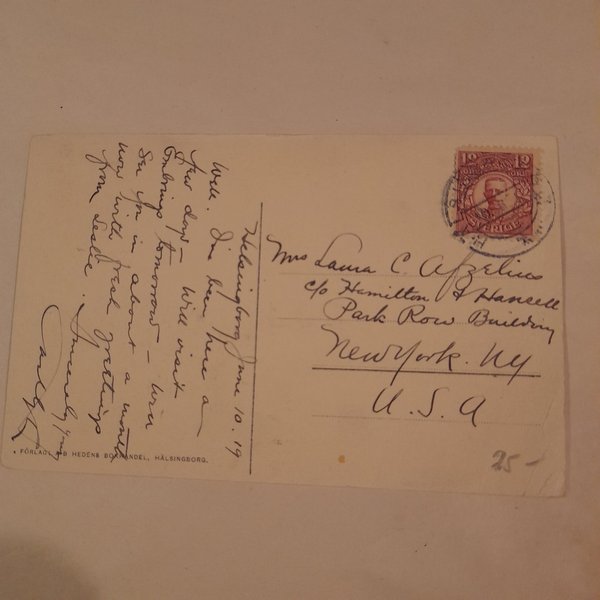 Helsingborg June 10. 19
Well. I'm been here a
few days - Will visit
tomorrow - will
See you in about a month
now with fresh greetings
from Leslie. Sincerely yours
Mrs Laura C. Afzelius
c/o Hamilton & Hansell
Park Row Building
New York. NY
U.S.A
10 10
SVERIGE
25-
FÖRLAG: HEDENS BOKHANDEL, HÄLSINGBORG.